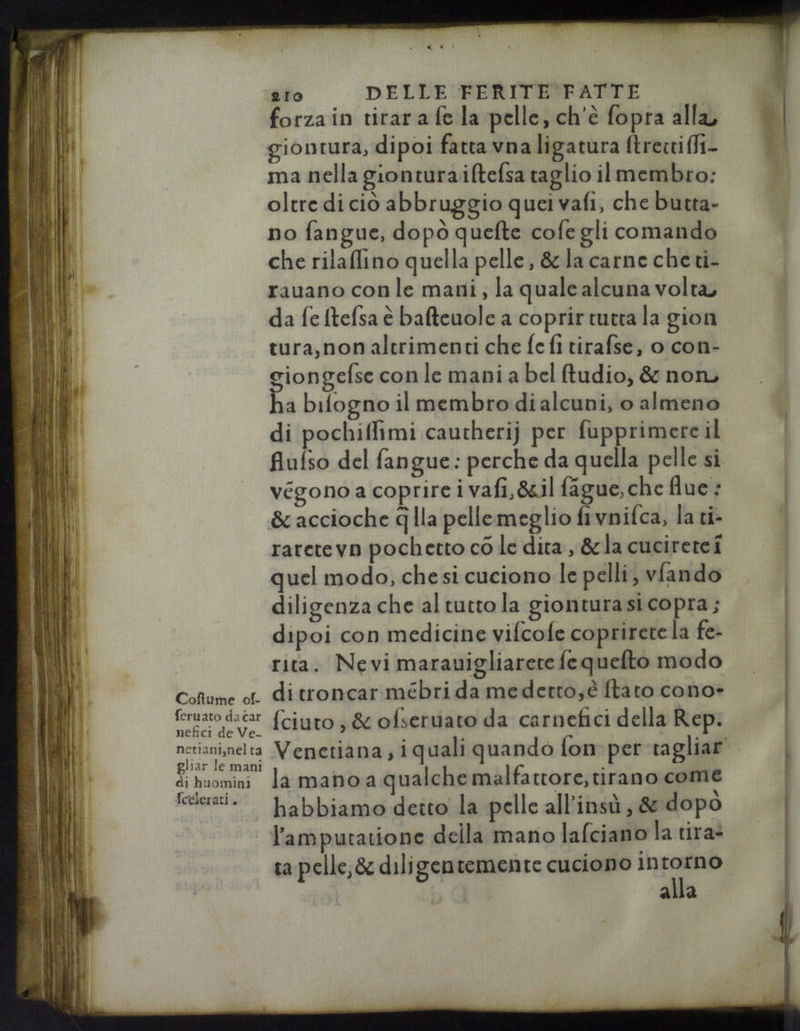 210 DELLE FERITE FATTE
forza in tirar a ſe la pelle, ch'è ſopra alla
giontura, dipoi fatta vna ligatura ſtrettiſſi-
ma nella giontura iſteſsa taglio il membro:
oltre di ciò abbruggio quei vaſi, che butta-
no ſangue, dopò queſte coſe gli comando
che rilaſſino quella pelle, & la carne che ti-
rauano con le mani, la quale alcuna volta
da ſe ſteſsa è baſteuole a coprir tutta la gion
tura, non altrimenti che ſe ſi tiraſse, o con-
giongeſse con le mani a bel ſtudio, & non
ha biſogno il membro di alcuni, o almeno
di pochiſſimi cautherij per ſupprimere il
fluſso del ſangue: perche da quella pelle si
vẽgono a coprire i vaſi, & il ſãgue, che flue:
& accioche q̃lla pelle meglio ſi vniſca, la ti-
rarete vn pochetto cõ le dita, & la cucirete ĩ
quel modo, che si cuciono le pelli, vſando
diligenza che al tutto la giontura si copra;
dipoi con medicine viſcoſe coprirete la fe-
rita. Ne vi marauigliarete ſe queſto modo
di troncar mẽbri da me detto, è ſtato cono-
ſciuto, & oſseruato da carnefici della Rep.
Venetiana, i quali quando ſon per tagliar
la mano a qualche malfattore, tirano come
habbiamo detto la pelle all'insù, & dopò
l'amputatione della mano laſciano la tira-
ta pelle, & diligentemente cuciono intorno
alla
Coſtume oſ-
ſeruato da car
nefici de Ve-
netiani, nel ta
gliar le mani
di huomini
ſcelerati.